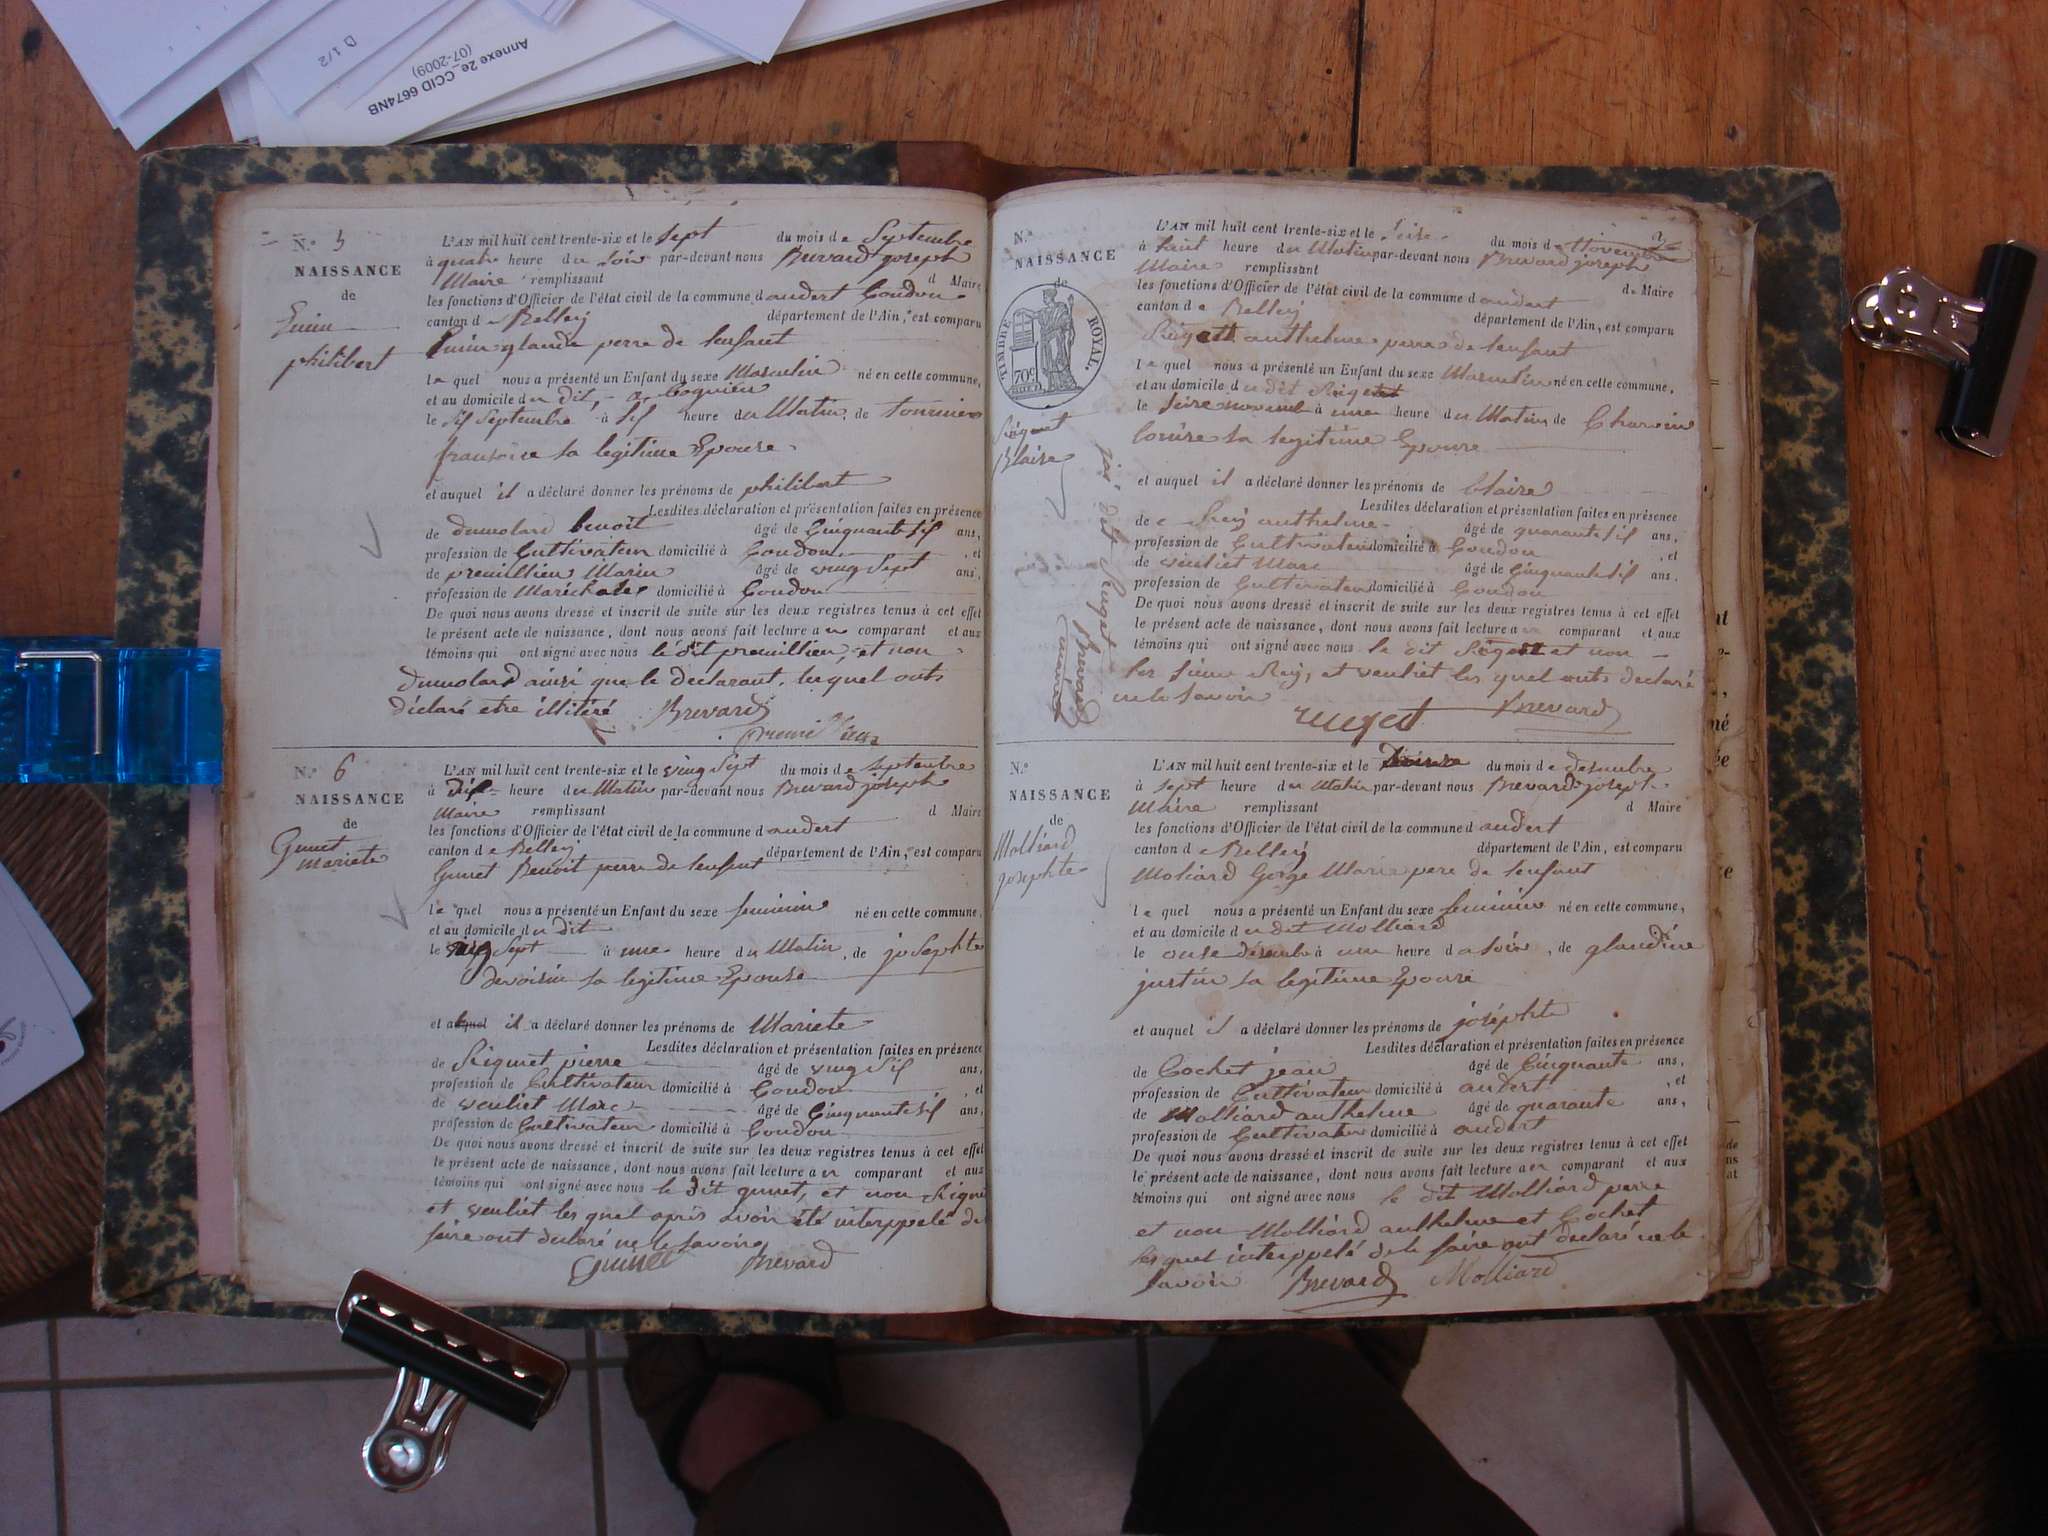 D 1/2
Annexe 2e_CCID 6674NB
(07-2009)
N.º 5
NAISSANCE
de
philibert
L'AN mil huit cent trente-six et le sept du mois de Septembre
à quatre heure du Soir par-devant nous Brevard joseph
Maire remplissant d Maire
les fonctions d'Officier de l'état civil de la commune d andert Condon
canton de Belley département de l'Ain, est comparu
glaude perre de lenfant
le quel nous a présenté un Enfant du sexe Masculin né en cette commune,
et au domicile du dit,
le sis Septembre à sis heure du Matin, de
fransoise sa legitime Epouse
et auquel il a déclaré donner les prénoms de philibert
Lesdites déclaration et présentation faites en présence
de dumolard benoît âgé de Cinquant sis ans,
profession de Cultivateur domicilié à Condon, et
de Marin âgé de vingt Sept ans,
profession de Maréchale domicilié à Condon
De quoi nous avons dressé et inscrit de suite sur les deux registres tenus à cet effet
le présent acte de naissance, dont nous avons fait lecture au comparant et aux
témoins qui ont signé avec nous le dit et non
dumolard ainsi que le declarant, lequel onts
déclaré etre illitéré Brevard
N.º 6
NAISSANCE
de
Gunet
mariete
L'AN mil huit cent trente-six et le ving sept du mois de septembre
à heure du Matin par-devant nous Brevard joseph
Maire remplissant d Maire
les fonctions d'Officier de l'état civil de la commune d andert
canton de Belley département de l'Ain, est comparu
Benoit perre de lenfant
le quel nous a présenté un Enfant du sexe feminin né en cette commune,
et au domicile du dit
le ving Sept à une heure du Matin, de josephte
devoisin sa legitime Epouse
et il a déclaré donner les prénoms de Mariete
Lesdites déclaration et présentation faites en présence
de pierre âgé de ving sis ans,
profession de Cultivateur domicilié à Condon, et
de veuliet Marc âgé de Cinquante sis ans,
profession de Cultivateur domicilié à Condon
De quoi nous avons dressé et inscrit de suite sur les deux registres tenus à cet effet
le présent acte de naissance, dont nous avons fait lecture au comparant et aux
témoins qui ont signé avec nous le dit gunet, et non
et veuliet les quel apris avoir été interppelé de
faire ont declaré ne le savoire
Brevard
N.º
NAISSANCE
de
TIMBRE ROYAL.
70c
Blaise
L'AN mil huit cent trente-six et le seise du mois de Novembre
à huit heure du Matin par-devant nous Brevard joseph
Maire remplissant de Maire
les fonctions d'Officier de l'état civil de la commune d andert
canton de Belley département de l'Ain, est comparu
anthelme perre de lenfant
le quel nous a présenté un Enfant du sexe Masculin né en cette commune,
et au domicile du dit
le seise à une heure du Matin de
sa legitime Epouse
et auquel il a déclaré donner les prénoms de blaise
Lesdites déclaration et présentation faites en présence
de Rey anthelme âgé de quarante sis ans,
profession de Cultivateur domicilié à Condon, et
de veuliet Marc âgé de Cinquante sis ans,
profession de Cultivateur domicilié à Condon
De quoi nous avons dressé et inscrit de suite sur les deux registres tenus à cet effet
le présent acte de naissance, dont nous avons fait lecture a comparant et aux
témoins qui ont signé avec nous le dit et non
les sieur Rey, et veuliet les quel onts declaré
ne le savoir
Brevard
N.º
NAISSANCE
de
Molliard
josephte
L'AN mil huit cent trente-six et le du mois de desembre
à sept heure du Matin par-devant nous Brevard joseph
Maire remplissant d Maire
les fonctions d'Officier de l'état civil de la commune d andert
canton de Belley département de l'Ain, est comparu
Moliard Gorge Marie pere de lenfant
le quel nous a présenté un Enfant du sexe feminin né en cette commune,
et au domicile du dit Molliard
le onse à heure soir, de glaudine
justin sa legitime Epouse
et auquel il a déclaré donner les prénoms de joséphte
Lesdites déclaration et présentation faites en présence
de Cochet jean âgé de Cinquante ans,
profession de Cultivateur domicilié à andert, et
de Molliard anthelme âgé de quarante ans,
profession de Cultivateur domicilié à andert
De quoi nous avons dressé et inscrit de suite sur les deux registres tenus à cet effet
le présent acte de naissance, dont nous avons fait lecture au comparant et aux
témoins qui ont signé avec nous le dit Molliard perre
et non Molliard anthelme et Cochet
les quel interppelé de le faire ont declaré ne le
Savoir Brevard Molliard